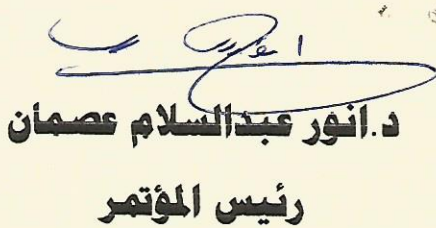 د.انور عبدالسلام عصمان
رئيس المؤتمر